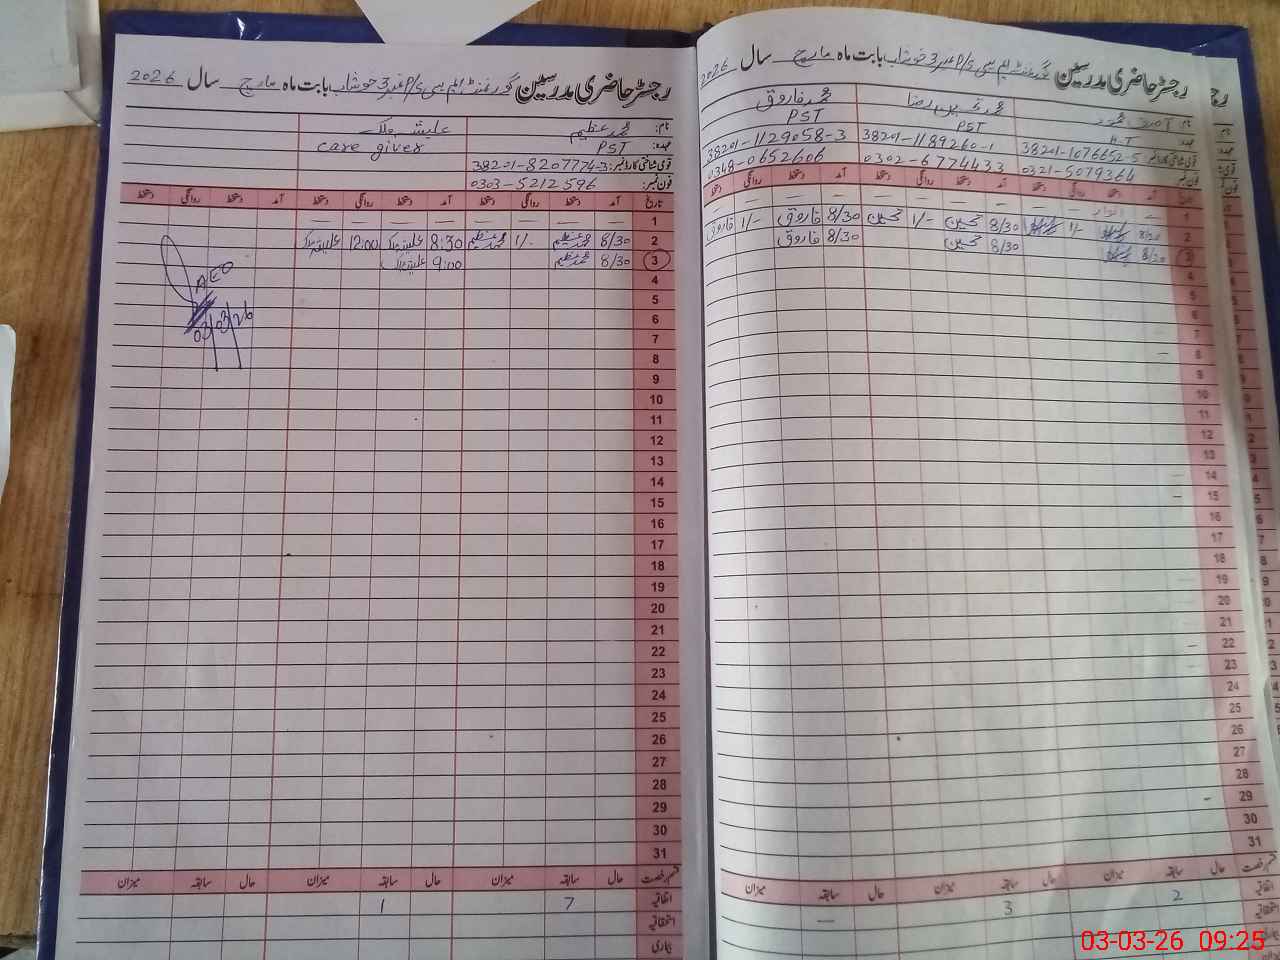 رجسٹر حاضری مدرسین گورنمنٹ ایم سی P/S نمبر 3 خوشاب بابت ماہ مارچ سال 2026
نام: محمد فاروق
عہدہ: H.T PST PST
قومی شناختی کارڈ نمبر: 38201-1076652-5 38201-1189260-1 38201-1129058-3
فون نمبر: 0321-5079364 0302-6774433 0348-0652606
تاریخ آمد دستخط روانگی دستخط آمد دستخط روانگی دستخط آمد دستخط روانگی دستخط
1 — اتوار —
2 8/20 1/- 8/30 محسن 1/- محسن 8/30 فاروق 1/- فاروق
3 8/20 8/30 محسن 8/30 فاروق
4
5
6
7
8
9
10
11
12
13
14
15
16
17
18
19
20
21
22
23
24
25
26
27
28
29
30
31
قسم رخصت حال سابقہ میزان حال سابقہ میزان حال سابقہ میزان
اتفاقیہ 2 3 —
استحقاقیہ
بیماری
رجسٹر حاضری مدرسین گورنمنٹ ایم سی P/S نمبر 3 خوشاب بابت ماہ مارچ سال 2026
نام: محمد عظیم علیشہ ملک
عہدہ: PST care giver
قومی شناختی کارڈ نمبر: 38201-8207774-3
فون نمبر: 0303-5212596
تاریخ آمد دستخط روانگی دستخط آمد دستخط روانگی دستخط آمد دستخط روانگی دستخط
1 — — — — — — — —
2 8/30 محمد عظیم 1/- محمد عظیم 8:30 علیشہ ملک 12:00 علیشہ ملک
3 8/30 محمد عظیم 9:00 علیشہ ملک
AEO
03/03/26
4
5
6
7
8
9
10
11
12
13
14
15
16
17
18
19
20
21
22
23
24
25
26
27
28
29
30
31
قسم رخصت حال سابقہ میزان حال سابقہ میزان حال سابقہ میزان
اتفاقیہ 7 1
استحقاقیہ
بیماری
03-03-26 09:25